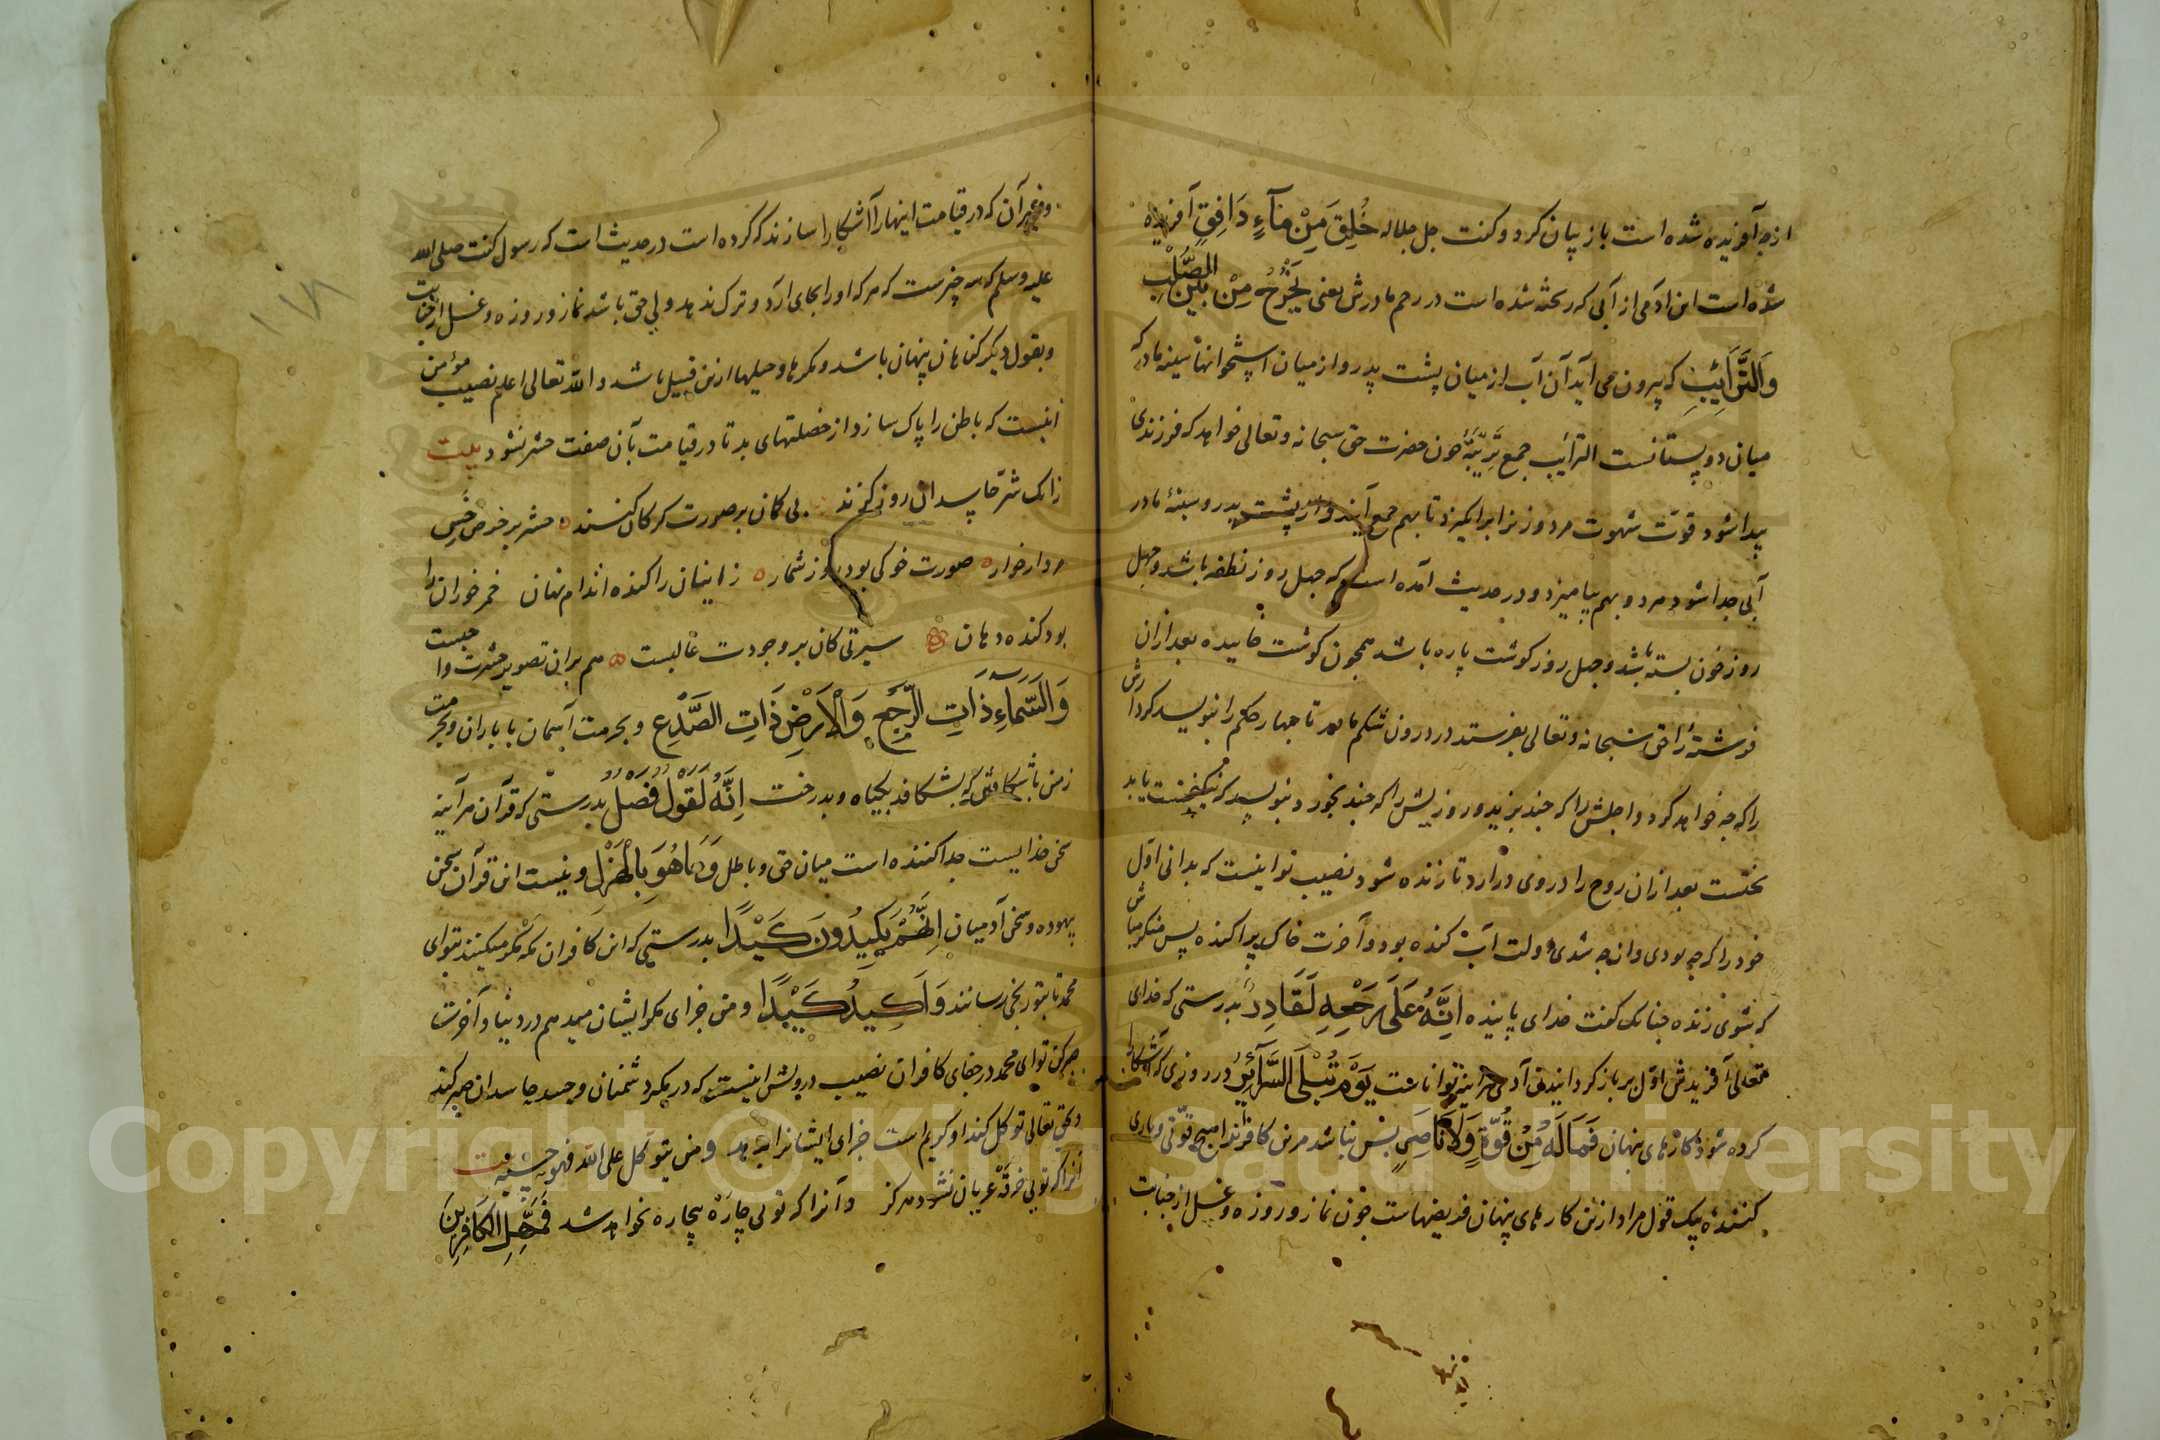 از چه آفریده شده است باز بیان کرد و گفت جل جلاله خُلِقَ مِنْ مَآءٍ دَافِقٍ آفریده
شده است این آدمی از آبی که ریخته شده است در رحم مادرش یعنی یَخْرُجُ مِنْ بَیْنِ الصُّلْبِ
وَالتَّرَآئِبِ که بیرون می آید آن آب از میان پشت پدر و از میان استخوانهاء سینه مادر که
میان دو پستانست الترائب جمع تَرِیْبَةٌ چون حضرت حق سبحانه و تعالی خواهد که فرزندی
پیدا شود قوّت شهوت مرد و زنرا برانکیزد تا بهم جمع آیند و از پشت پدر و سینهٔ مادر
آبی جدا شود مرد و بهم بیامیزد و در حدیث آمده است که چهل روز نطفه باشد و چهل
روز خون بسته باشد و چهل روز کوشت پاره باشد همچون کوشت خاییده بعد از آن
فرشتهٔ را حق سبحانه و تعالی بفرستد در درون شکم مادر تا چهار حکم را بنویسد کردارش
را که چه خواهد کرد و اجلش را که چند بزید و روزیش را که چند بخورد و بنویسد که نیکبخت یا بد
بخت بعد از آن روح را در وی درآرد تا زنده شود نصیب تو اینست که بدانی اوّل
خود را که چه بودی و از چه شدی اولت آب کنده بود و آخرت خاک پراکنده پس منکر مباش
که شوی زنده چنانک گفت خدای پاینده اِنَّهُ عَلَی رَجْعِهِ لَقَادِرٌ بدرستی که خدای
تعالی آفریدش اوّل بر باز کردانیدن آدمی هرآینه توانا ست یَوْمَ تُبْلَی السَّرَآئِرُ در روزی که آشکارا
کرده شود کارهای پنهان فَمَا لَهُ مِنْ قُوَّةٍ وَلَا نَاصِرٍ پس نباشد مرین کافرانرا هیچ قوّتی و یاری
کنندهٔ بیک قول مراد ازین کارهای پنهان فریضهاست چون نماز و روزه و غسل از جنابت
و غیر آن که در قیامت اینها را آشکارا سازند که کرده است در حدیث است که رسول گفت صلی الله
علیه وسلم که سه چیزست که هر که او را بجای آرد و ترک ندهد ولی حق باشد نماز و روزه و غسل از جنابت
و بقول دیکر کناهان پنهان باشد و مکرها و حیلها ازین قبیل باشد و الله تعالی اعلم نصیب مؤمن
اینست که باطن را پاک سازد از خصلتهای بد تا در قیامت بآن صفت حشر نشود بیت
زانک حشر حاسدان روز کزند بی کمان بر صورت کرکان کنند حشر پر حرص خس
مردار خوار صورت خوکی بود روز شمار زانیان را کنده اندام نهان خمر خوران را
بود کنده دهان سیرتی کان بر وجودت غالبست هم بران تصویر حشرت واجبست
وَالسَّمَآءِ ذَاتِ الرَّجْعِ وَالْاَرْضِ ذَاتِ الصَّدْعِ و بحرمت آسمان با باران و بحرمت
زمین با شکافتن که بشکافد بکیاه و بدرخت اِنَّهُ لَقَوْلٌ فَصْلٌ بدرستی که قرآن هرآینه
سخن خدایست جدا کننده است میان حق و باطل وَمَا هُوَ بِالْهَزْلِ و نیست این قرآن سخن
بیهوده و سخن آدمیان اِنَّهُمْ یَکِیْدُونَ کَیْدًا بدرستی که این کافران مکه مکر میکنند بتو ای
محمد تا بتو رنجی رسانند وَاَکِیْدُ کَیْدًا و من جزای مکر ایشان میدهم در دنیا و آخرت
صبر کن تو ای محمد در جفای کافران نصیب درویش اینست که در مکر دشمنان و حسد حاسدان صبر کند
و بحق تعالی توکل کند او کریم است جزای ایشانرا بدهد ومن یتوکل علی الله فهو حسبه بیت
آنرا که تویی خرقه عریان نشود هرکز وآنرا که تویی چاره بیچاره نخواهد شد فَمَهِّلِ الْکَافِرِیْنَ